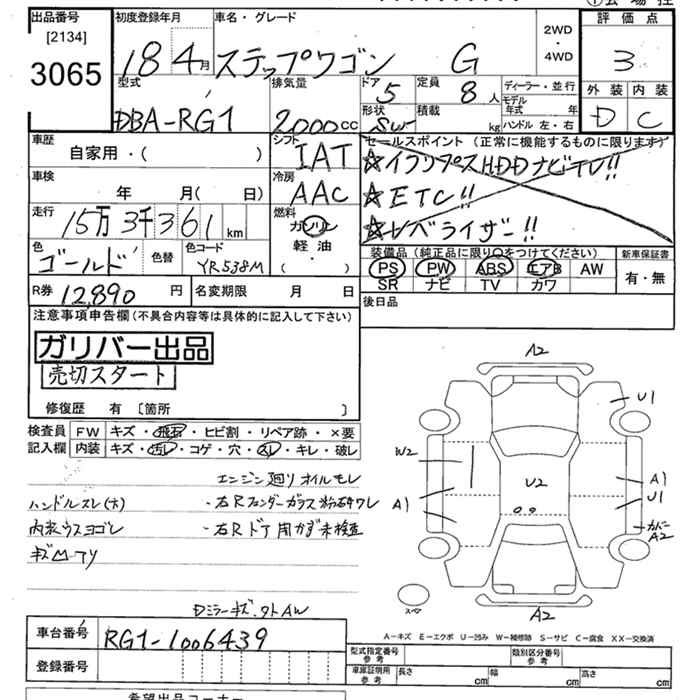 出品番号
[2134]
3065
初度登録年月
18 4月
車名・グレード
ステップワゴン G
2WD
・
4WD
評価点
3
外装 内装
D C
型式
DBA-RG1
排気量
2000cc
ドア
5
定員
8人
ディーラー・並行
モデル年式 年
形状
SW
積載
kg
ハンドル 左・右
車歴
自家用・( )
シフト
IAT
セールスポイント (正常に機能するものに限ります)
☆インプス HDDナビTV!!
☆ETC!!
☆レベライザー!!
車検
年 月( 日)
冷房
AAC
走行
15万3千361 km
燃料
ガソリン
軽油
( ・ )
色
ゴールド
色替
色コード
YR538M
装備品 (純正品に限り○をつけてください)
PS PW ABS エアB AW
SR ナビ TV カワ
新車保証書
有・無
R券 12,890 円
名変期限 月 日
後日品
注意事項申告欄 (不具合内容等は具体的に記入して下さい)
ガリバー出品
売切スタート
修復歴 有 〔箇所 〕
検査員 FW キズ・飛石・ヒビ割・リペア跡・×要
記入欄 内装 キズ・汚れ・コゲ・穴・スレ・キレ・破レ
エンジン廻りオイルモレ
ハンドルスレ(大)
・右Rフェンダーガラス
内装ウスヨゴレ
・右Rドア 未検査
DミラーキズAW
A2
U1
W2
U2
A1
U1
A1
カバー
A2
スペア
A2
A-キズ E-エクボ U-凹み W-補修跡 S-サビ C-腐食 XX-交換済
車台番号 RG1-1006439
登録番号
型式指定番号 参考
類別区分番号 参考
車庫証明用 参考 長さ cm 幅 cm 高さ cm
希望出品コーナー